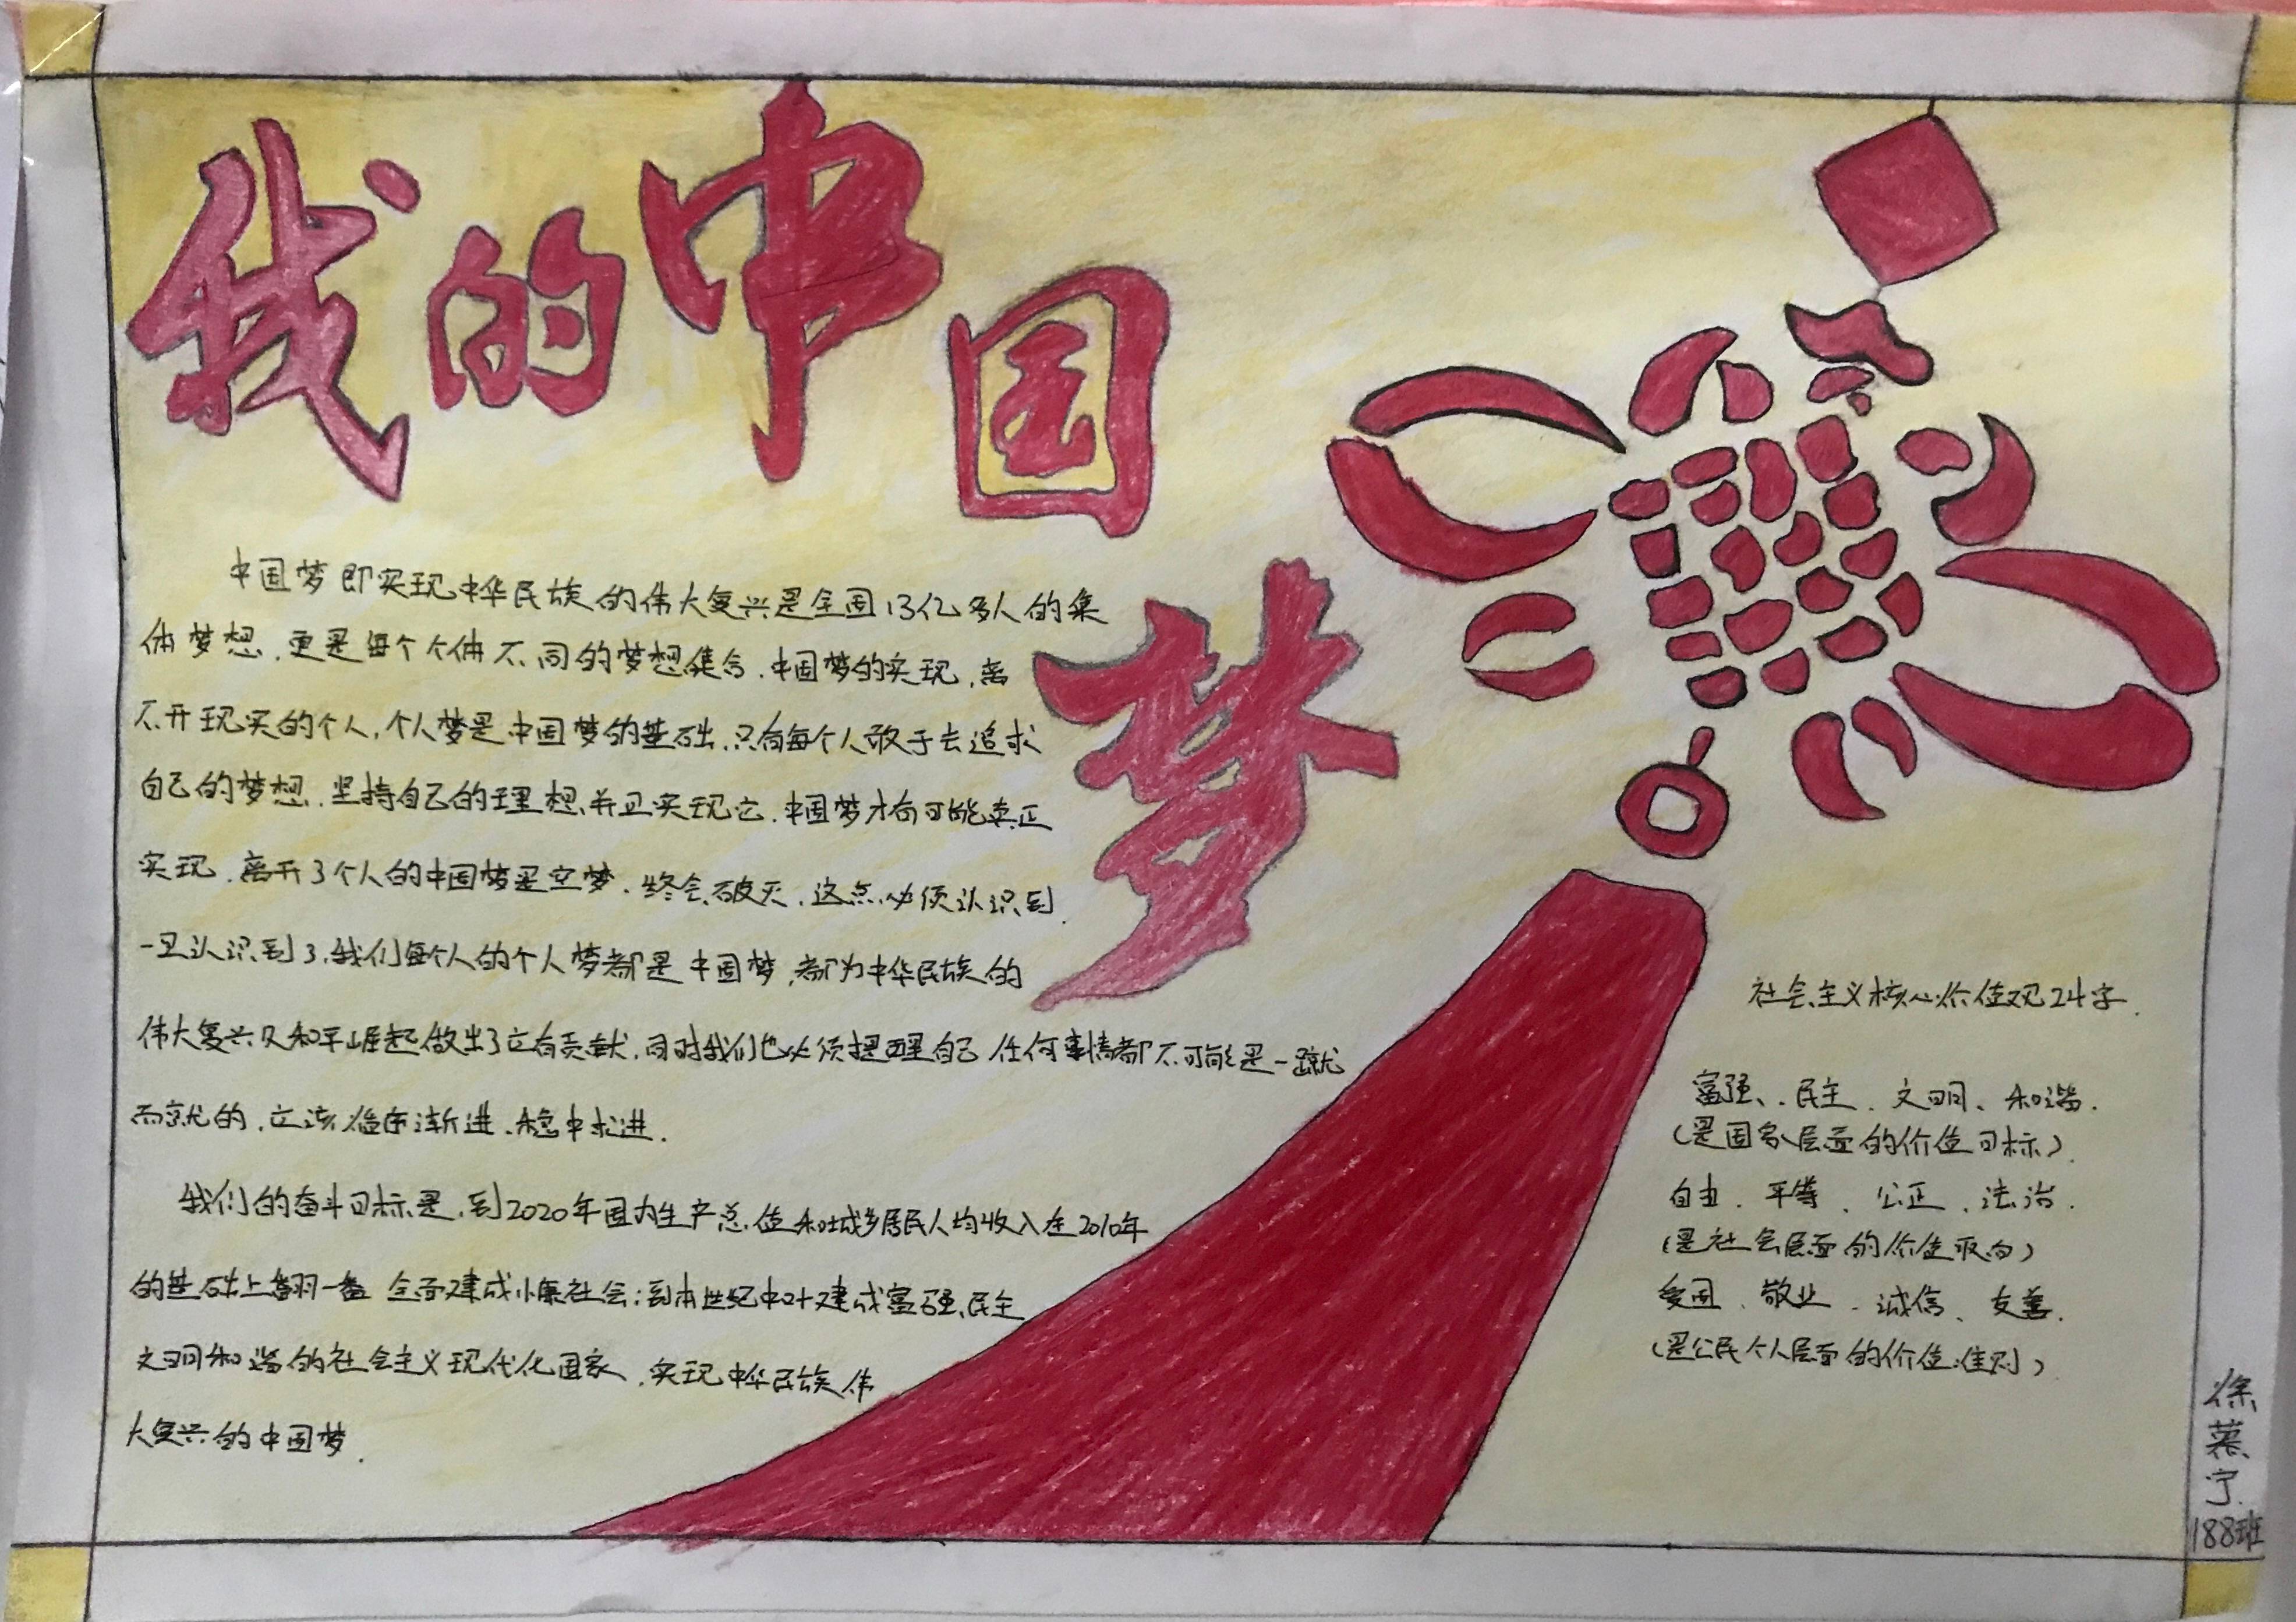 我的中国梦
中国梦即实现中华民族的伟大复兴是全国13亿多人的集
体梦想,更是每个个体不同的梦想集合.中国梦的实现,离
不开现实的个人,个人梦是中国梦的基础.只有每个人敢于去追求
自己的梦想.坚持自己的理想,并且实现它.中国梦才有可能真正
实现.离开了个人的中国梦是空梦.终会破灭.这点必须认识到.
一旦认识到了,我们每个人的个人梦都是中国梦,都为中华民族的
伟大复兴及和平崛起做出了应有贡献.同时我们也必须提醒自己 任何事情都不可能是一蹴
而就的.应该循序渐进.稳中求进.
我们的奋斗目标是.到2020年国内生产总值和城乡居民人均收入在2010年
的基础上翻一番 全面建成小康社会;到本世纪中叶建成富强、民主
文明和谐的社会主义现代化国家.实现中华民族伟
大复兴的中国梦.
社会主义核心价值观24字.
富强、民主、文明、和谐.
(是国家层面的价值目标).
自由、平等、公正、法治.
(是社会层面的价值取向)
爱国、敬业、诚信、友善.
(是公民个人层面的价值准则)
徐慕宁
188班